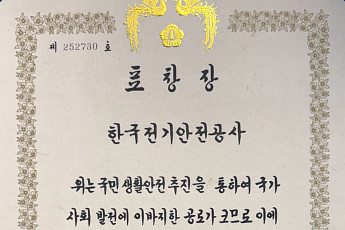 제 252730 호
표창장
한국전기안전공사
위는 국민생활안전추진을 통하여 국가
사회 발전에 이바지한 공로가 크므로 이에